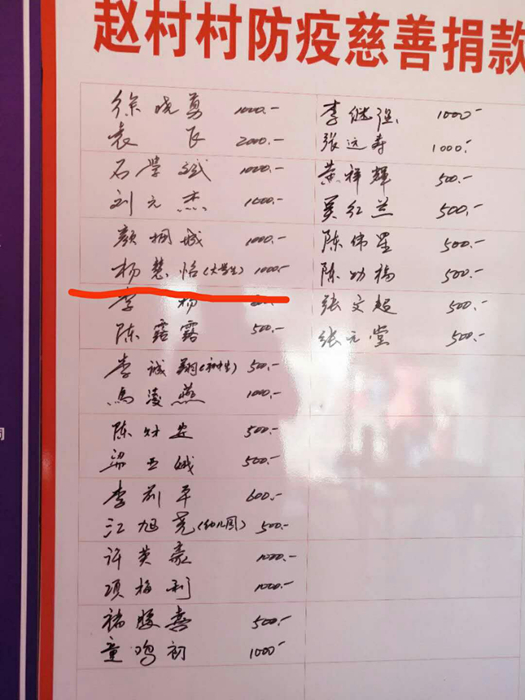 赵村村防疫慈善捐款
徐晓勇 1000.-
袁飞 2000.-
石学斌 1000.-
刘元杰 1000.-
颜桐城 1000.-
杨慧怡(大学生) 1000.-
李杨
陈露露 500.-
李诚翔(初中生) 500.-
马凌燕 1000.-
陈财安 500.-
梁亚娥 500.-
李前平 600.-
江旭亮(幼儿园) 500.-
许英豪 1000.-
项梅利 1000.-
褚腾喜 500.-
童鸣初 1000-
李继强 1000-
张远寿 1000-
黄祥辉 500.-
吴红兰 500.-
陈伟星 500.-
陈幼梅 500.-
张文超 500.-
张元堂 500.-